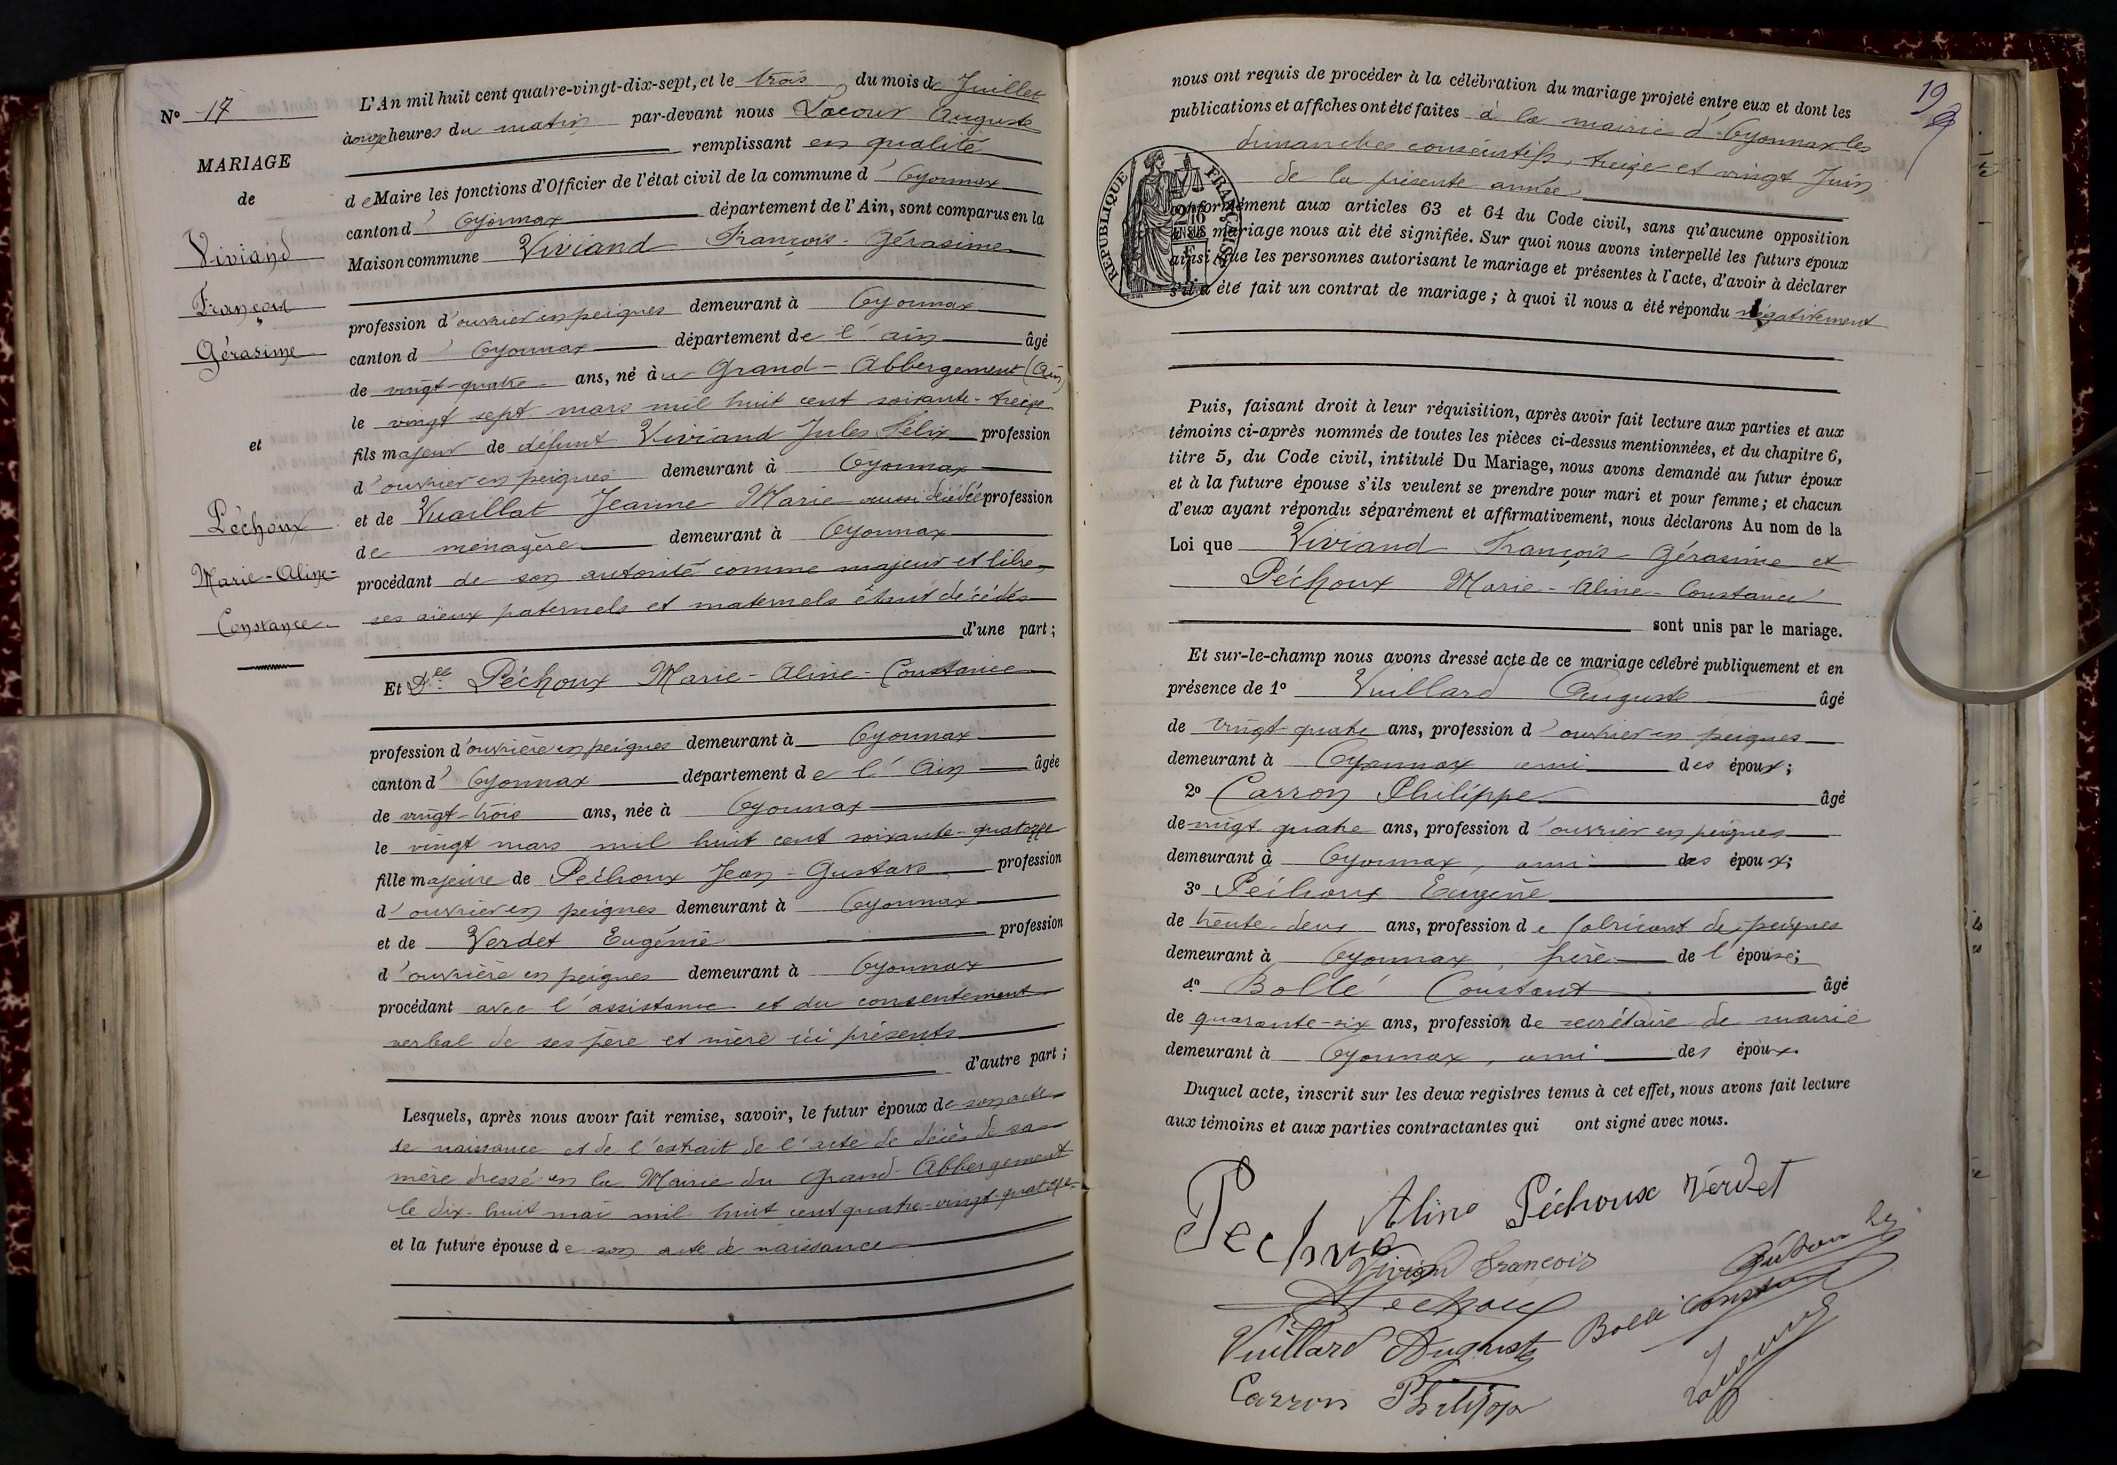 N° 17
MARIAGE
de
Viviand
François
Gérasime
et
Péchoux
Marie-Aline-
Constance
L'An mil huit cent quatre-vingt-dix-sept, et le trois du mois de Juillet
à onze heures du matin par-devant nous Lacour Auguste
remplissant en qualité
de Maire les fonctions d'Officier de l'état civil de la commune d'Oyonnax
canton d'Oyonnax département de l'Ain, sont comparus en la
Maison commune Viviand François-Gérasime
profession d'ouvrier en peignes demeurant à Oyonnax
canton d'Oyonnax département de l'ain âgé
de vingt-quatre ans, né au Grand-Abbergement (Ain)
le vingt sept mars mil huit cent soixante-treize
fils majeur de défunt Viviand Jules Félix profession
d'ouvrier en peignes demeurant à Oyonnax
et de Vuaillat Jeanne Marie aussi décédée profession
de ménagère demeurant à Oyonnax
procédant de son autorité comme majeur et libre,
ses aïeux paternels et maternels étant décédés
d'une part;
Et Dlle Péchoux Marie-Aline-Constance
profession d'ouvrière en peignes demeurant à Oyonnax
canton d'Oyonnax département de l'Ain âgée
de vingt-trois ans, née à Oyonnax
le vingt mars mil huit cent soixante-quatorze
fille majeure de Péchoux Jean-Gustave profession
d'ouvrier en peignes demeurant à Oyonnax
et de Verdet Eugénie profession
d'ouvrière en peignes demeurant à Oyonnax
procédant avec l'assistance et du consentement
verbal de ses père et mère ici présents
d'autre part;
Lesquels, après nous avoir fait remise, savoir, le futur époux de son acte
de naissance et de l'extrait de l'acte de décès de sa
mère dressé en la Mairie du Grand-Abbergement
le dix-huit mai mil huit cent quatre-vingt-quatorze
et la future épouse de son acte de naissance
19
nous ont requis de procéder à la célébration du mariage projeté entre eux et dont les
publications et affiches ont été faites à la mairie d'Oyonnax les
dimanches consécutifs, treize et vingt Juin
de la présente année
RÉPUBLIQUE FRANÇAISE
conformément aux articles 63 et 64 du Code civil, sans qu'aucune opposition
au mariage nous ait été signifiée. Sur quoi nous avons interpellé les futurs époux
ainsi que les personnes autorisant le mariage et présentes à l'acte, d'avoir à déclarer
s'il a été fait un contrat de mariage; à quoi il nous a été répondu négativement
Puis, faisant droit à leur réquisition, après avoir fait lecture aux parties et aux
témoins ci-après nommés de toutes les pièces ci-dessus mentionnées, et du chapitre 6,
titre 5, du Code civil, intitulé Du Mariage, nous avons demandé au futur époux
et à la future épouse s'ils veulent se prendre pour mari et pour femme; et chacun
d'eux ayant répondu séparément et affirmativement, nous déclarons Au nom de la
Loi que Viviand François-Gérasime et
Péchoux Marie-Aline-Constance
sont unis par le mariage.
Et sur-le-champ nous avons dressé acte de ce mariage célébré publiquement et en
présence de 1° Vuillard Auguste âgé
de vingt-quatre ans, profession d'ouvrier en peignes
demeurant à Oyonnax ami des époux;
2° Carron Philippe âgé
de vingt quatre ans, profession d'ouvrier en peignes
demeurant à Oyonnax, ami des époux;
3° Péchoux Eugène
de trente-deux ans, profession de fabricant de peignes
demeurant à Oyonnax, frère de l'épouse;
4° Bollé Constant âgé
de quarante-six ans, profession de secrétaire de mairie
demeurant à Oyonnax, ami des époux.
Duquel acte, inscrit sur les deux registres tenus à cet effet, nous avons fait lecture
aux témoins et aux parties contractantes qui ont signé avec nous.
Aline Péchoux Verdet
Pechoux
Viviand François
Pechoux
Vuillard Auguste
Bollé Constant
Carron Philippe
Lacour